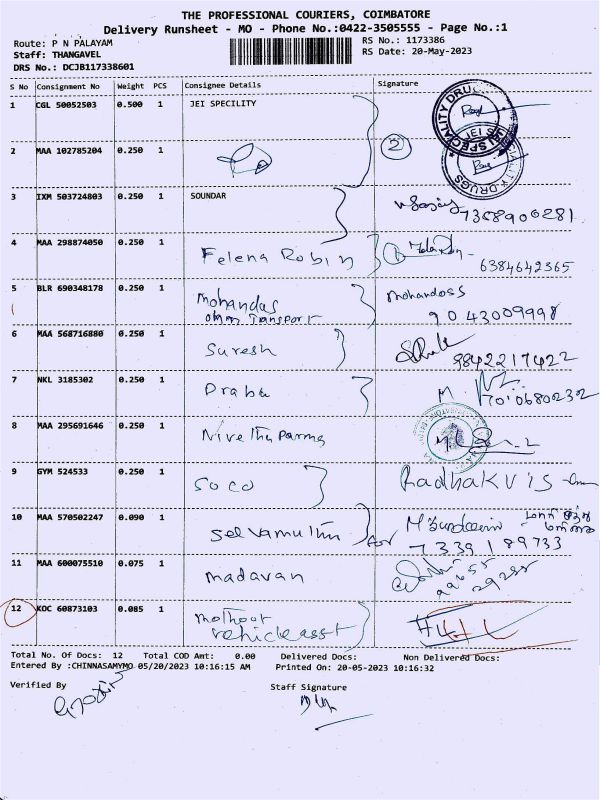 THE PROFESSIONAL COURIERS, COIMBATORE
Delivery Runsheet - MO - Phone No.:0422-3505555 - Page No.:1
Route: P N PALAYAM
RS No.: 1173386
Staff: THANGAVEL
RS Date: 20-May-2023
DRS No.: DCJB117338601
S No Consignment No Weight PCS Consignee Details Signature
1 CGL 50052503 0.500 1 JEI SPECILITY
2 MAA 102785204 0.250 1 2
3 IXM 503724803 0.250 1 SOUNDAR
7368900281
4 MAA 298874050 0.250 1 Felena Robin
6384642365
5 BLR 690348178 0.250 1 mohandas mohandoss
Transport 9043009998
6 MAA 568716880 0.250 1 Suresh
9842217422
7 NKL 3185302 0.250 1 Praba
8 MAA 295691646 0.250 1
9 GYM 524533 0.250 1 soco
10 MAA 570502247 0.090 1 selvamuthu for
7339189733
11 MAA 600075510 0.075 1 madavan
12 KOC 60873103 0.085 1 mothoot
vehicle asst
Total No. Of Docs: 12 Total COD Amt: 0.00 Delivered Docs: Non Delivered Docs:
Entered By :CHINNASAMYMO 05/20/2023 10:16:15 AM Printed On: 20-05-2023 10:16:32
Verified By Staff Signature